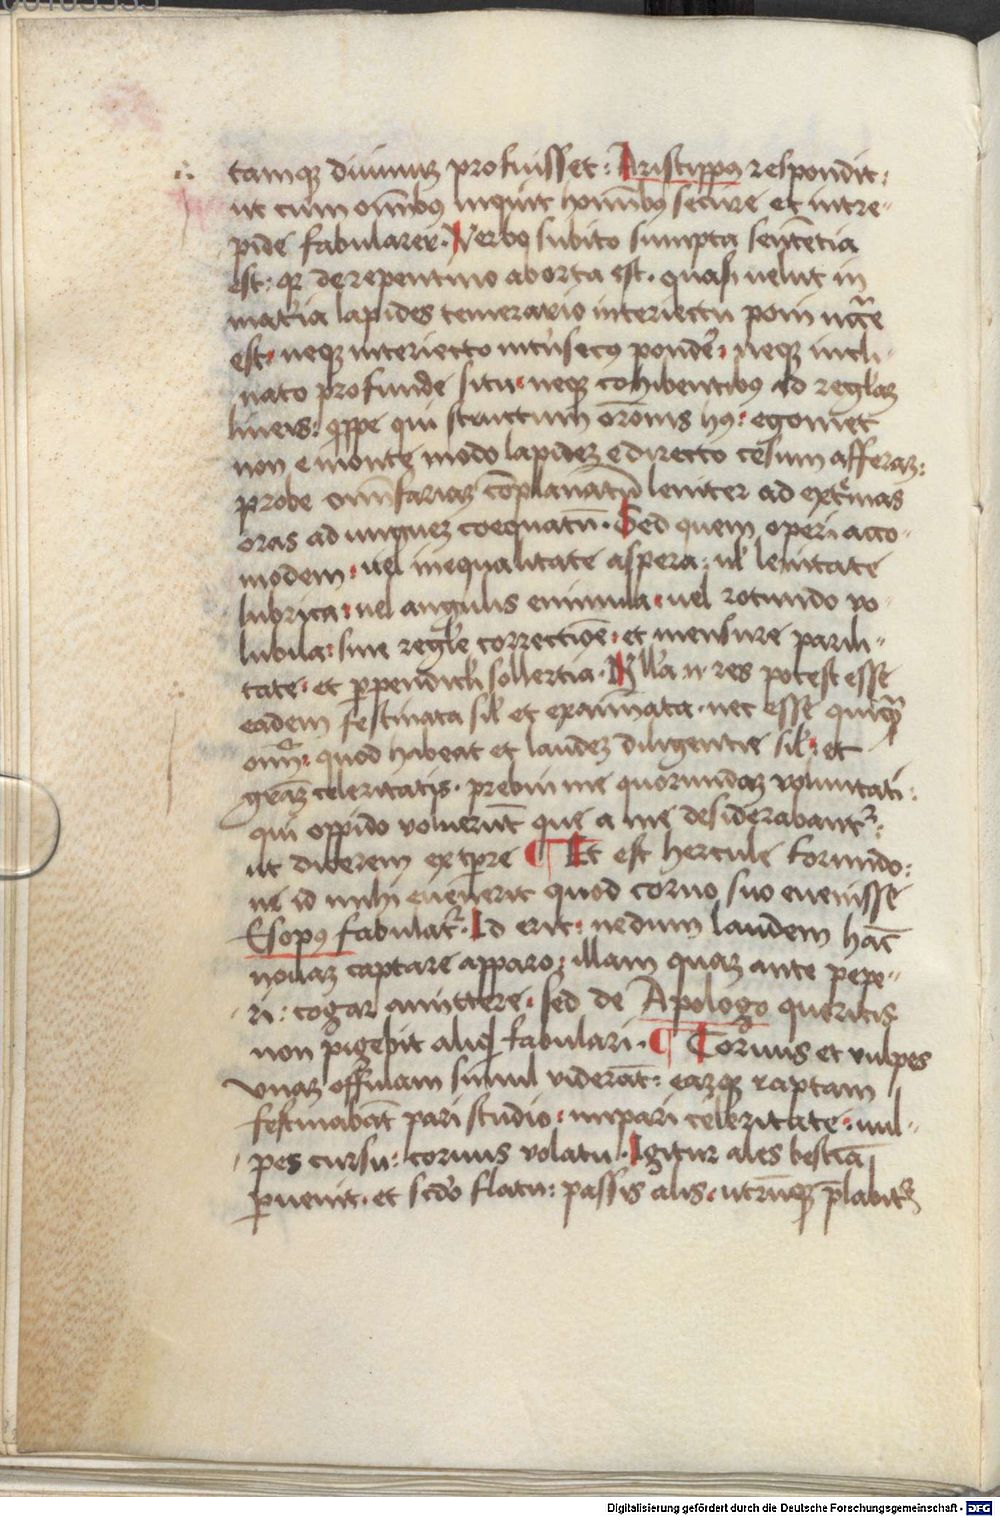 tamqꝫ diuinitꝫ profuisset: Aristippꝰ respondit:
ut cum om̅ibꝰ inquit homi̅bꝰ secure et intre-
pide fabularer. Verbo subito sumpta sente̅tia
est: qꝛ de repentino aborta est. quasi uelut in
mat̕ia lapides temerario interiectu poni n̅cc̅e
est: neqꝫ interiecto int̕insecꝰ ponder̕: neqꝫ incli-
nato profunde situ: neqꝫ cohibentibꝰ ad regl̕aꝫ
lineis: qͥppe qui structuru̅ or̅onis hꝰ: egomet
non e monte modo lapideꝫ e directo cesum afferaꝫ:
probe om̅ifariaꝫ co̅planatu̅ leniter ad ext̕mas
oras ad ungueꝫ coequatu̅. Sed quem operi acco-
modem: uel inequalitate aspera: ul̕ lenitate
lubrica: uel angulis eminula: uel rotundo vo-
lubila: sine regl̕e correctio̅e: et mensure parili-
tate: et p̱pendicl̕i sollertia. Nulla .n. res potest esse
eadem festinata sil̕ et exami̅ata. nec esse quicqͣꝫ
om̅iꝫ: quod habeat et laudeꝫ diligentie sil̕: et
gr̅aꝫ celeritatis. prebui me quorundaꝫ voluntati:
qui oppido voluerunt que a me desiderabantᷣ:
ut dicerem ext̕pre ¶ Et est hercule formido:
ne id mihi euenerit quod coruo suo euenisse
Esopꝰ fabulatᷣ. Id erit: nedum laudem hac̅
nouaꝫ captare apparo: illam quaꝫ ante pepe-
ri: cogar amittere. sed de Apologo queritis
non pigebit aliqd̕ fabulari. ¶ Coruus et vulpes
vnaꝫ offulam simul viderat̅: eaꝫqꝫ raptam
festinaba̅t pari studio: impari celeritate: uul-
pes cursu: coruus volatu. Igitur ales bestia̅
p̱uenit. et sc̅do flatu: passis alis: utri̅qꝫ p̅labitᷣ